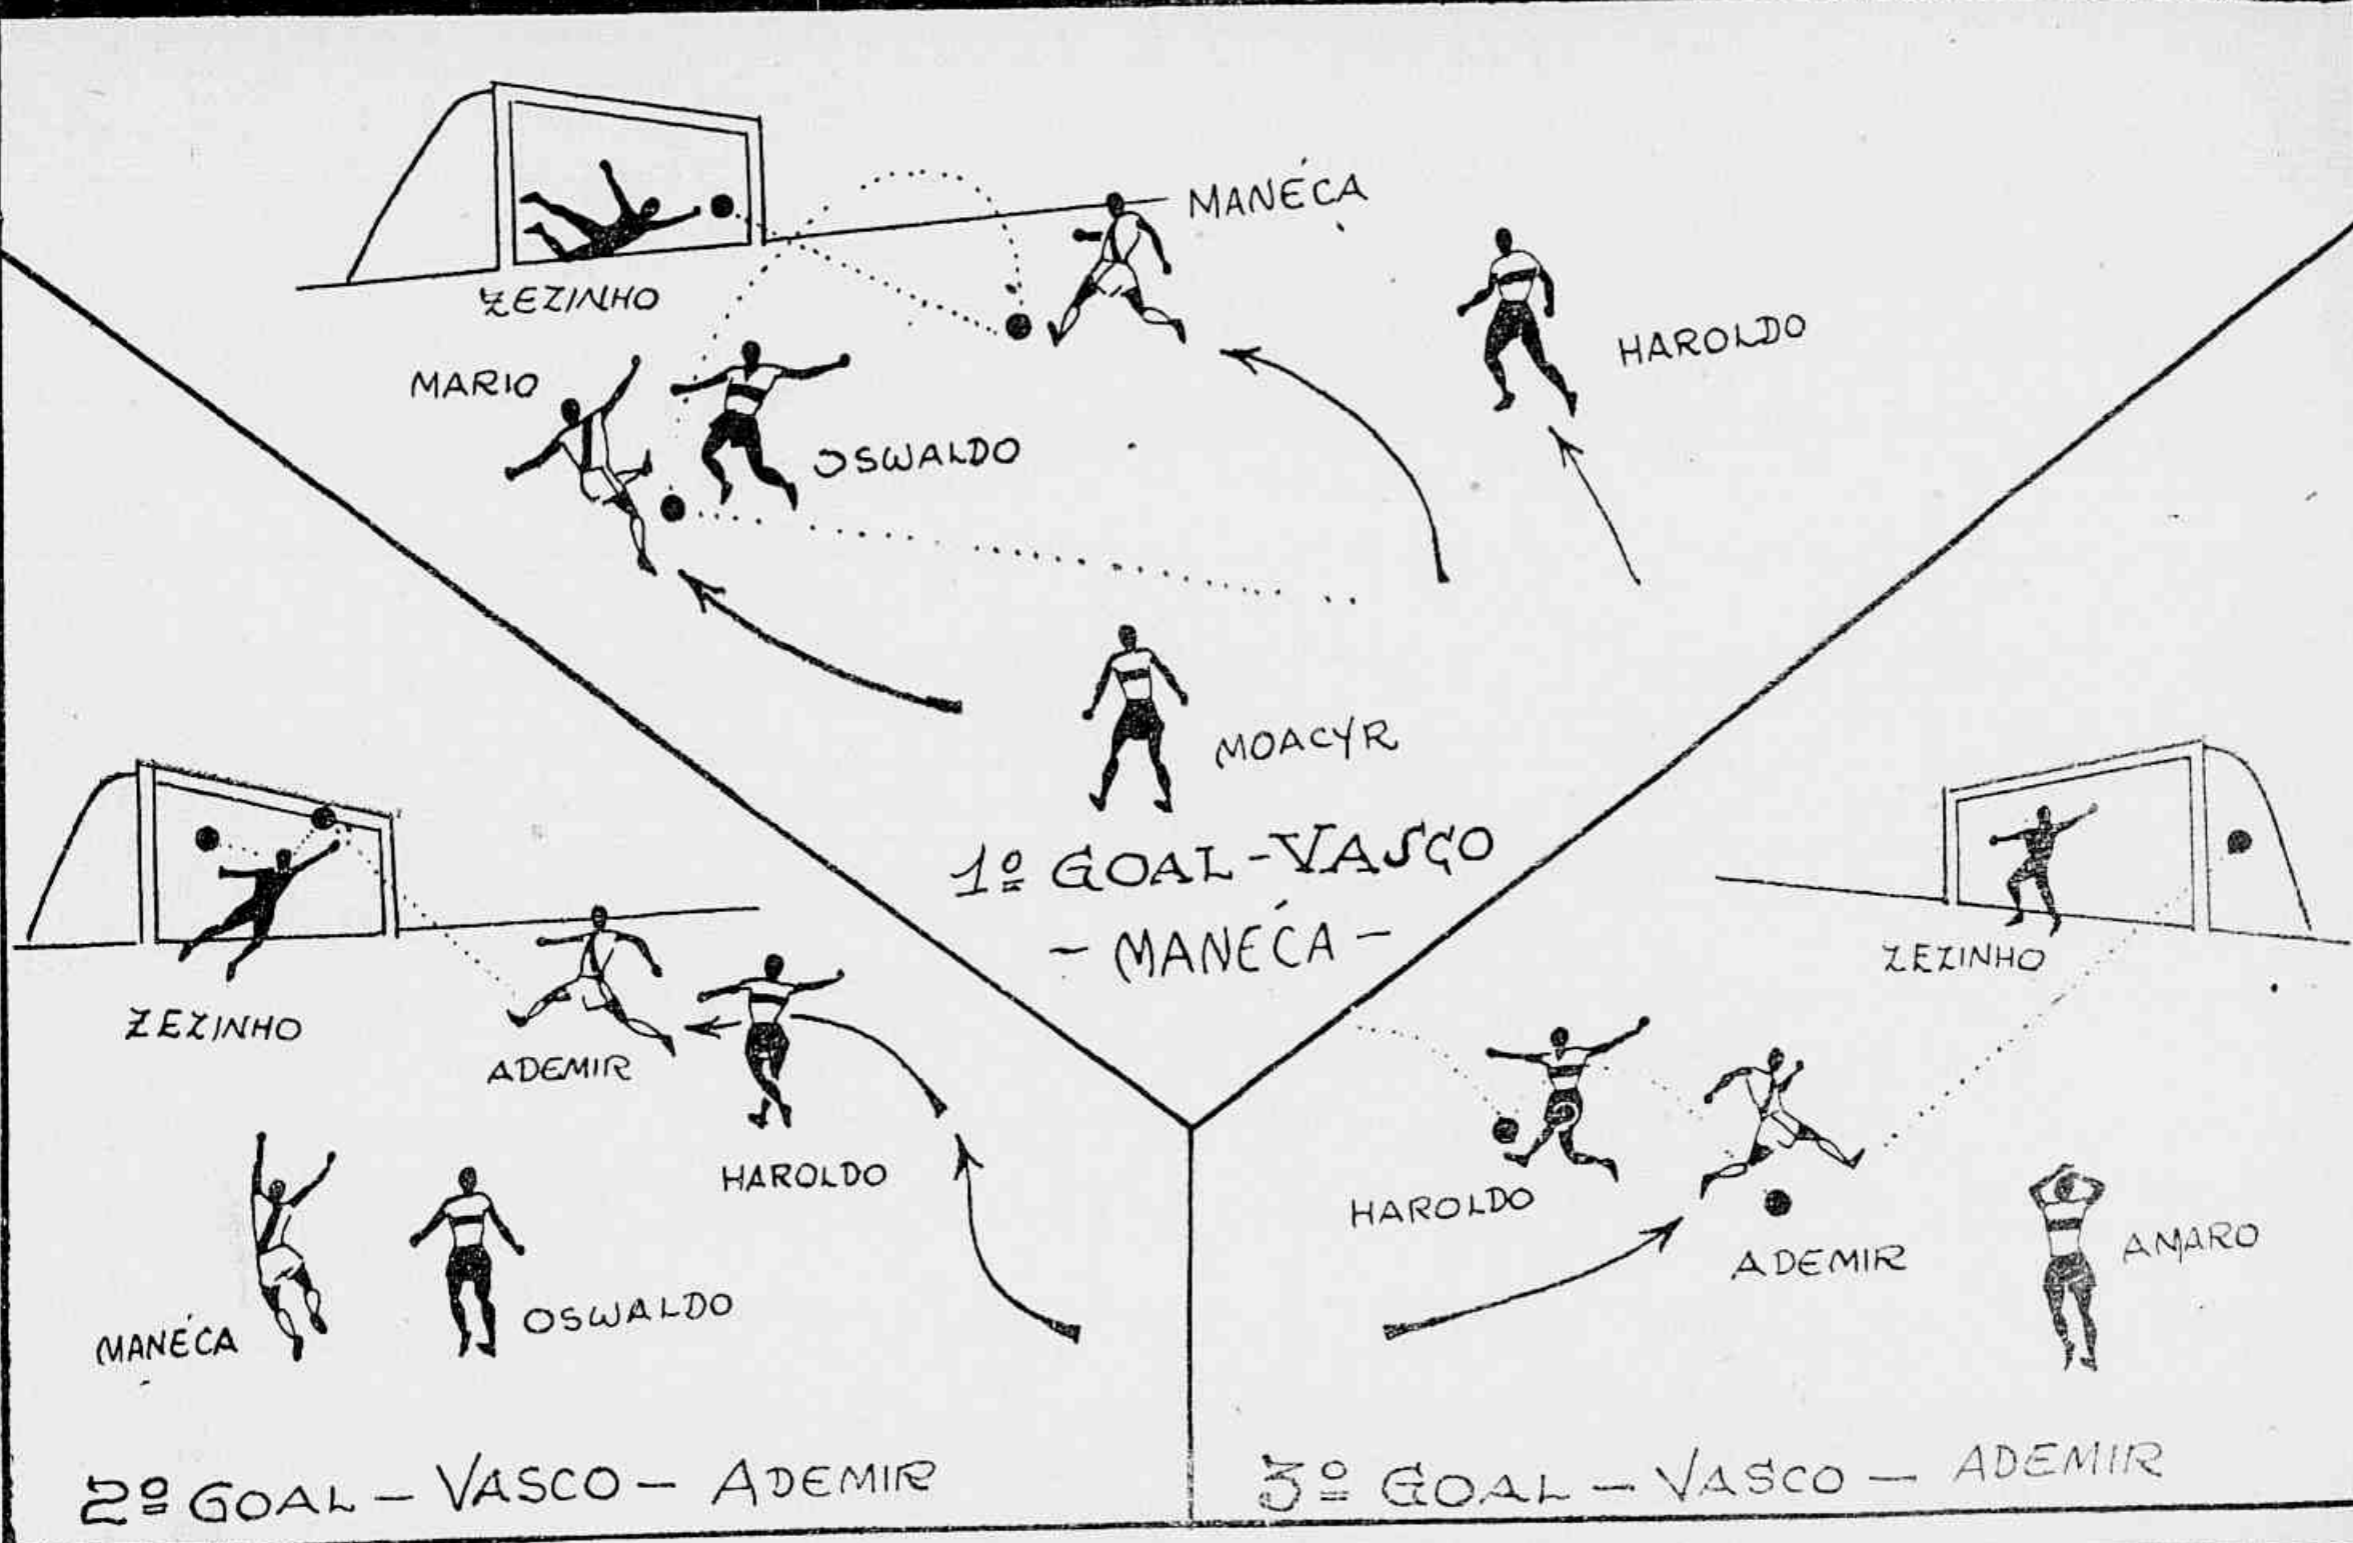 MANÉCA
ZEZINHO
HAROLDO
MARIO
OSWALDO
MOACYR
1º GOAL - VASCO
- MANÉCA -
ZEZINHO
ADEMIR
HAROLDO
MANÉCA
OSWALDO
2º GOAL - VASCO - ADEMIR
ZEZINHO
HAROLDO
ADEMIR
AMARO
3º GOAL - VASCO - ADEMIR